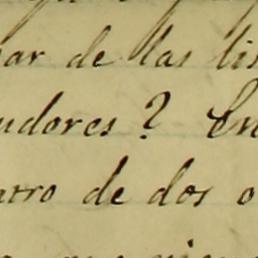 ar de las lis
udores? En
atro de dos o